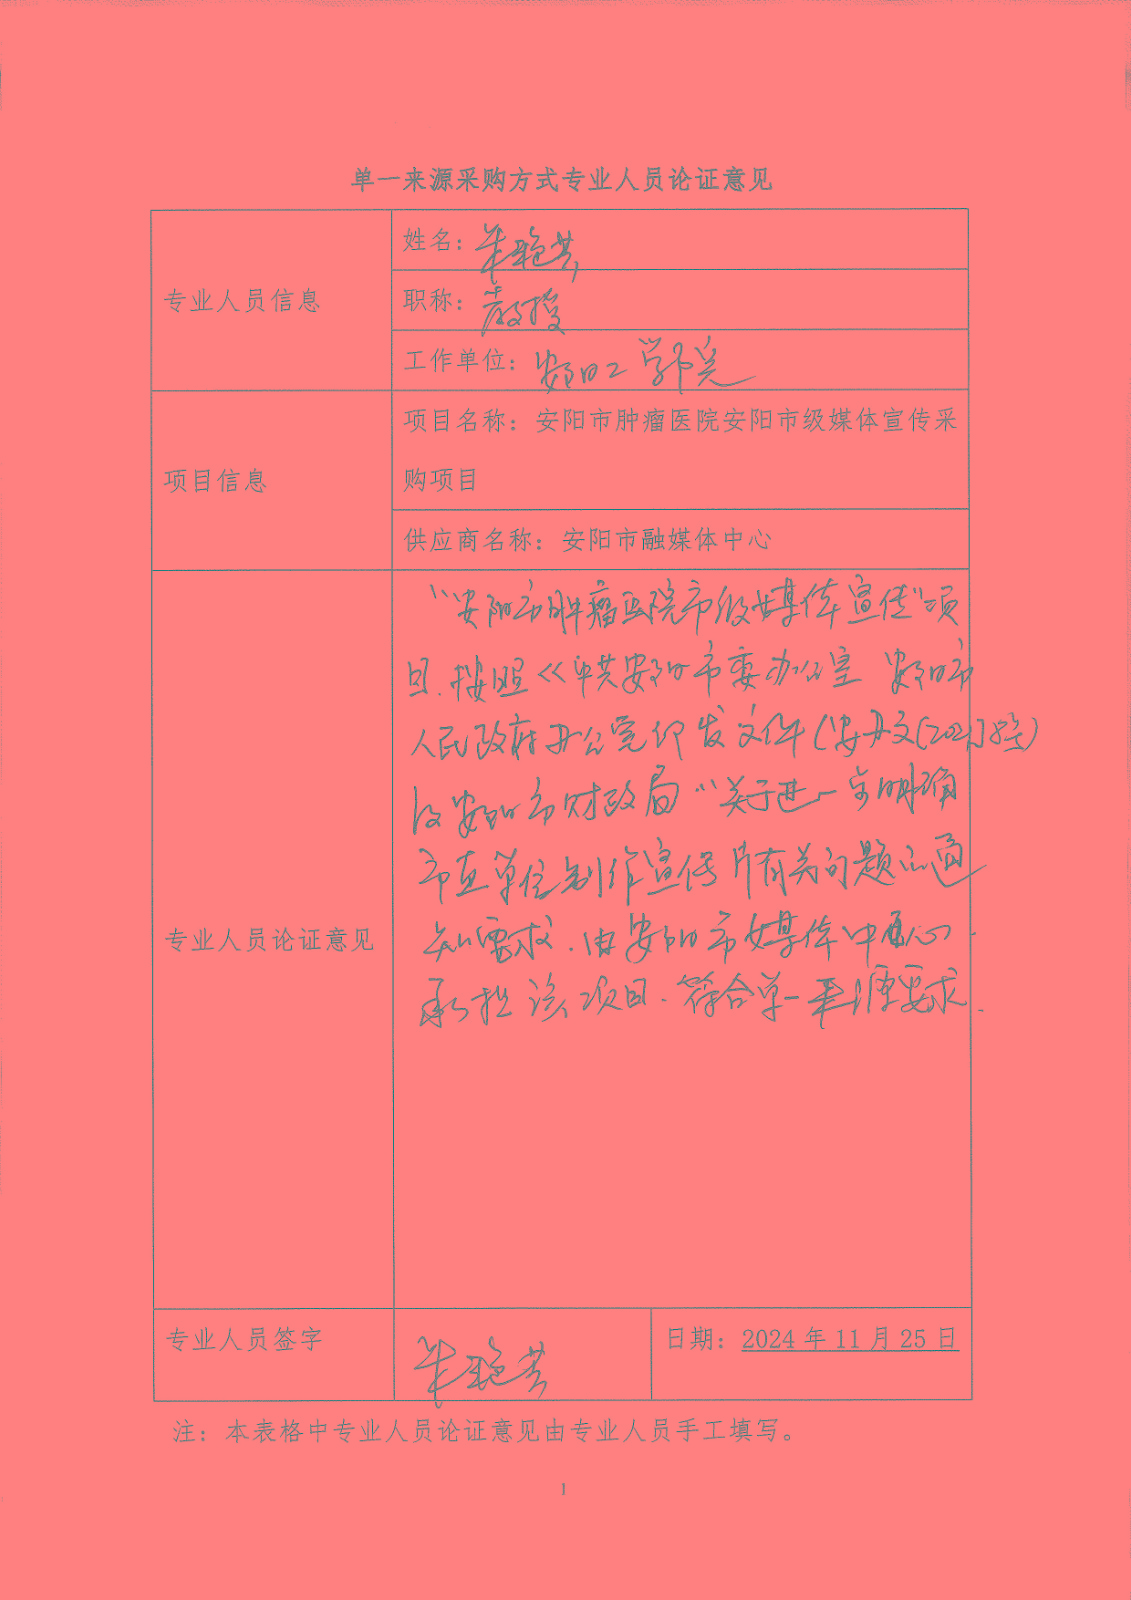 单一来源采购方式专业人员论证意见
专业人员信息
姓名：
职称：教授
工作单位：安阳工学院
项目信息
项目名称：安阳市肿瘤医院安阳市级媒体宣传采
购项目
供应商名称：安阳市融媒体中心
专业人员论证意见
“安阳市肿瘤医院市级媒体宣传”项
目.按照《中共安阳市委办公室 安阳市
人民政府办公室印发文件(安办文(2021)8号)
及安阳市财政局“关于进一步明确
市直单位制作宣传片有关问题的通
知要求.由安阳市媒体中心
承担该项目.符合单一来源要求.
专业人员签字
日期：2024 年 11 月 25 日
注：本表格中专业人员论证意见由专业人员手工填写。
1